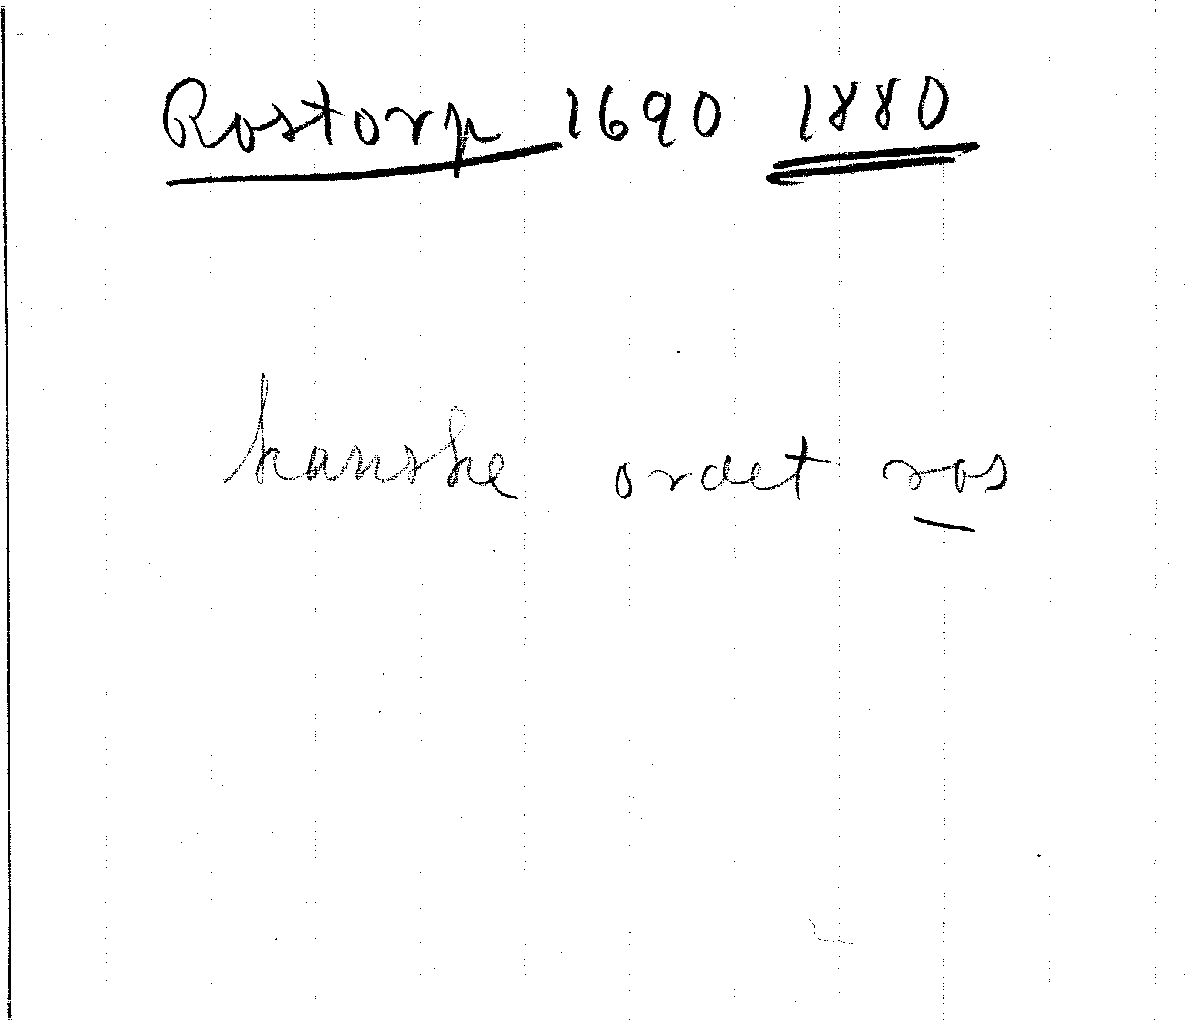 Rostorp 1690 1880
kanske ordet ros